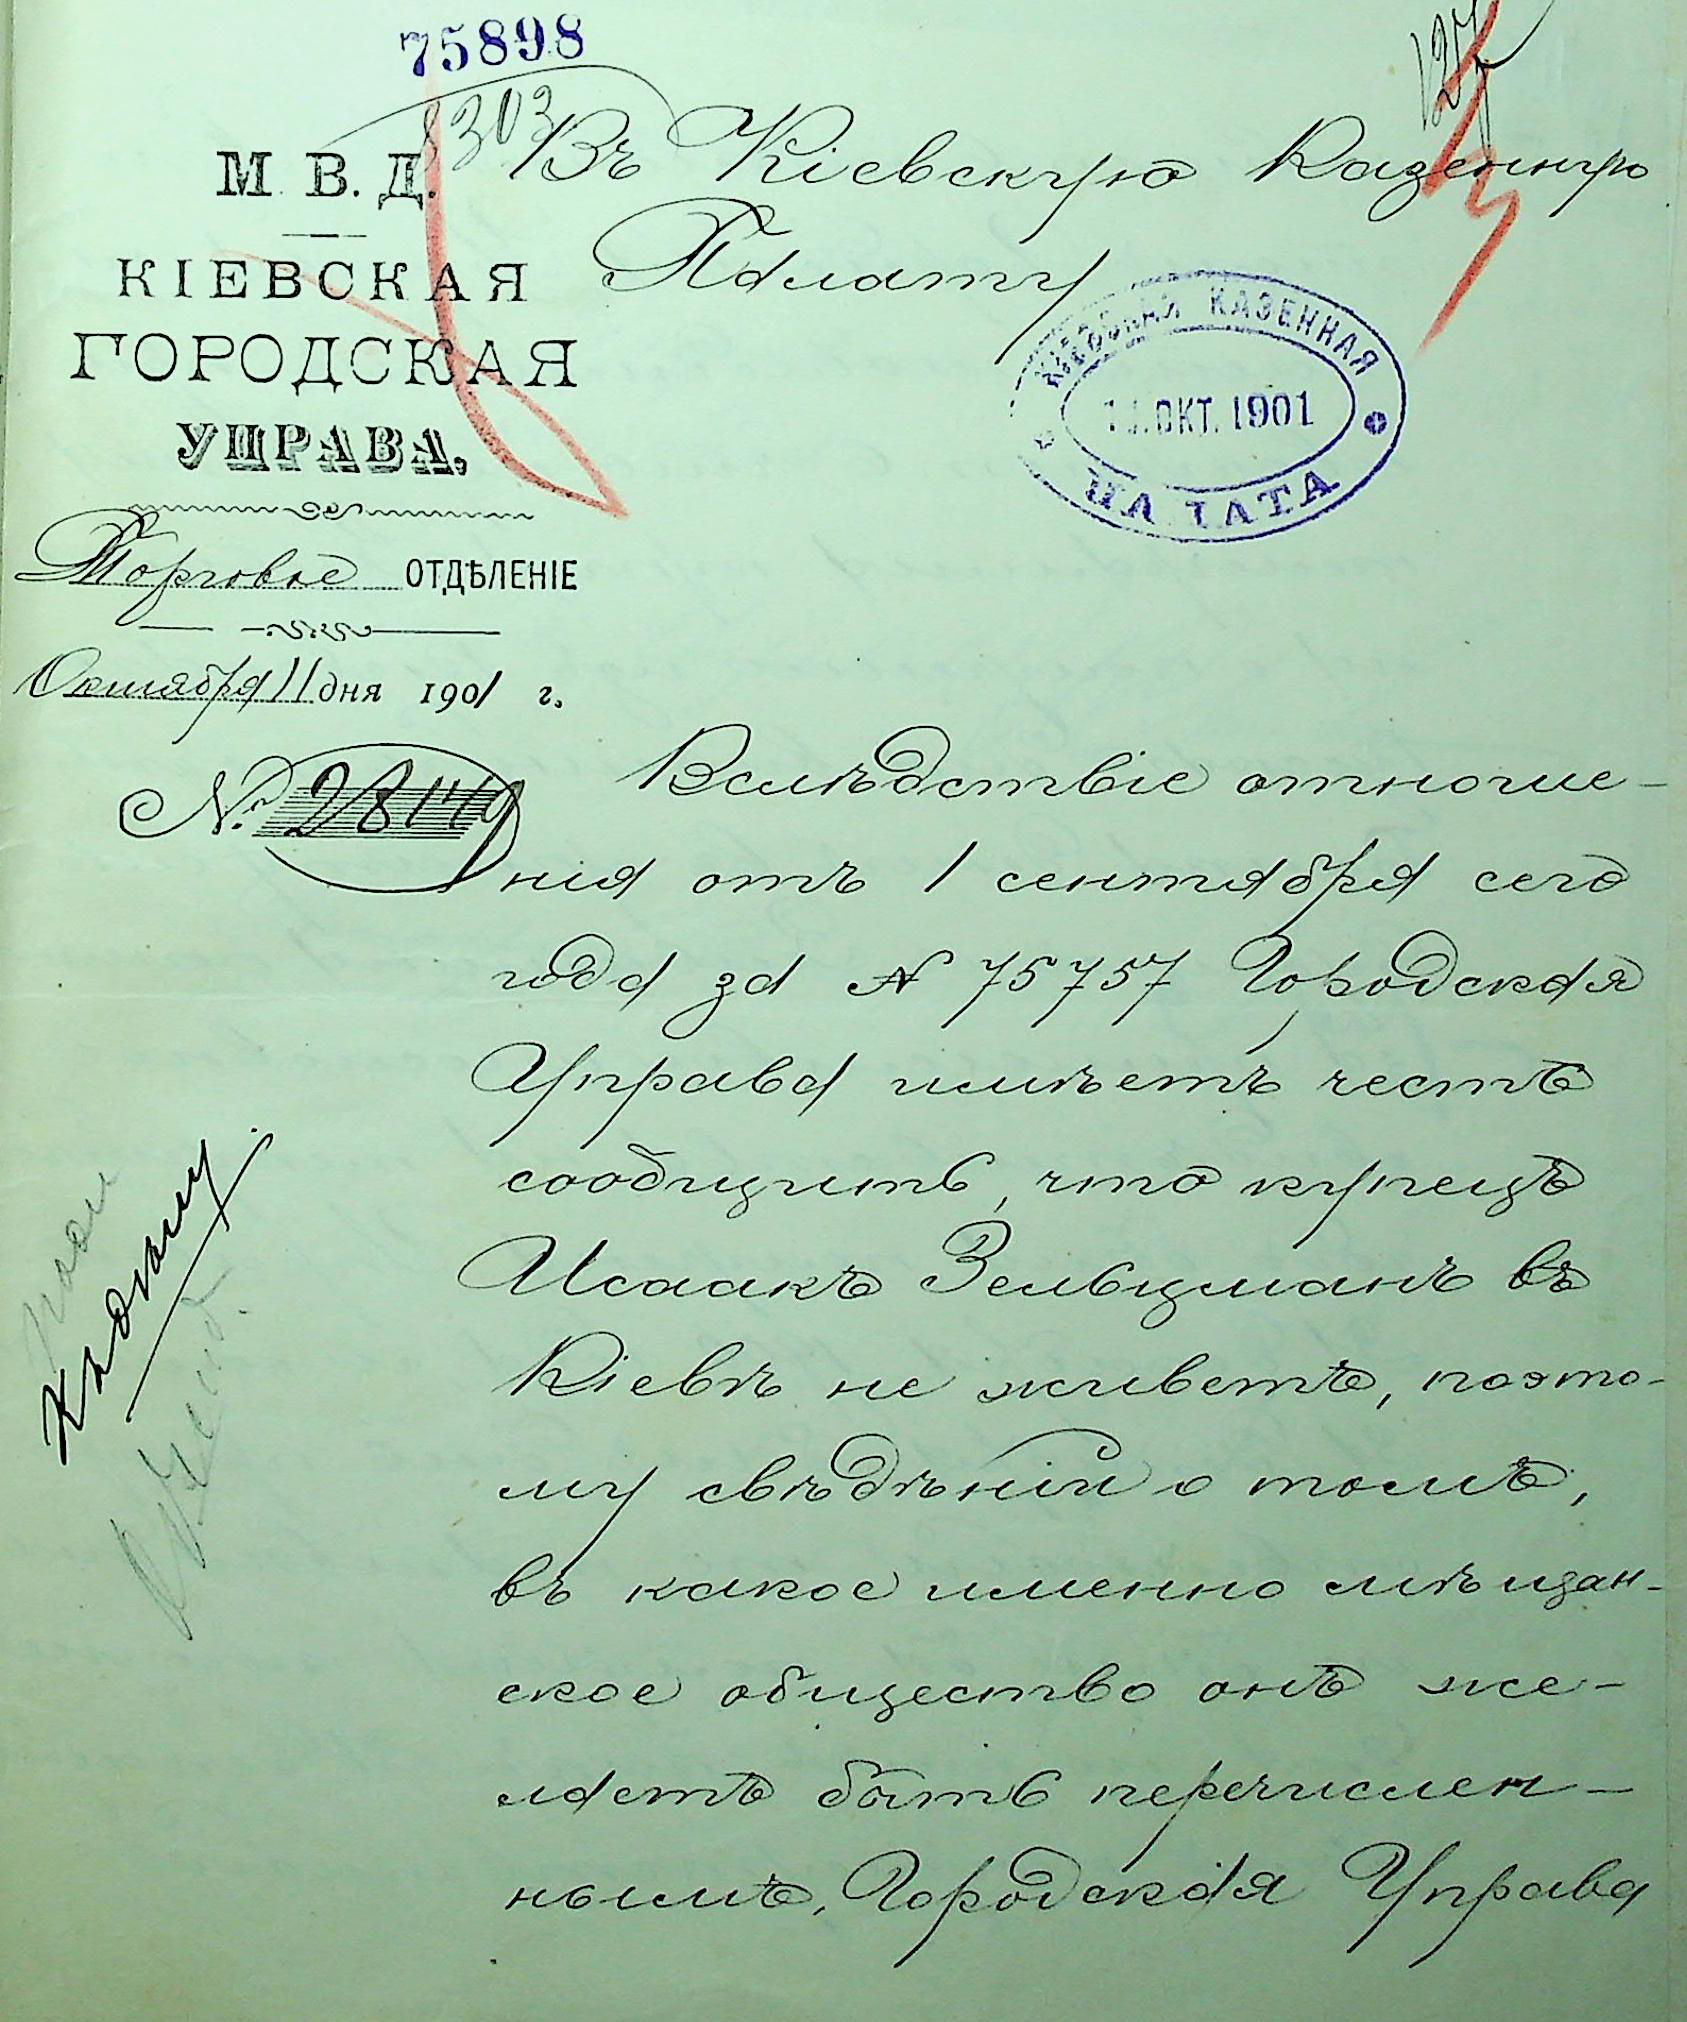 75898
8303
М. В. Д.
КІЕВСКАЯ
ГОРОДСКАЯ
УПРАВА.
Торговое ОТДѢЛЕНІЕ
Октября 11 дня 1901 г.
№ 28149
Въ Кіевскую Казенную
Палату
КІЕВСКАЯ КАЗЕННАЯ
11.ОКТ.1901
ПАЛАТА
Вслѣдствіе отноше-
нія отъ 1 сентября сего
года за № 75757 Городская
Управа имѣетъ честь
сообщить, что купецъ
Исаакъ Зельцманъ въ
Кіевѣ не живетъ, поэто-
му свѣдѣній о томъ,
въ какое именно мѣщан-
ское общество онъ же-
лаетъ быть перечислен-
нымъ, Городская Управа